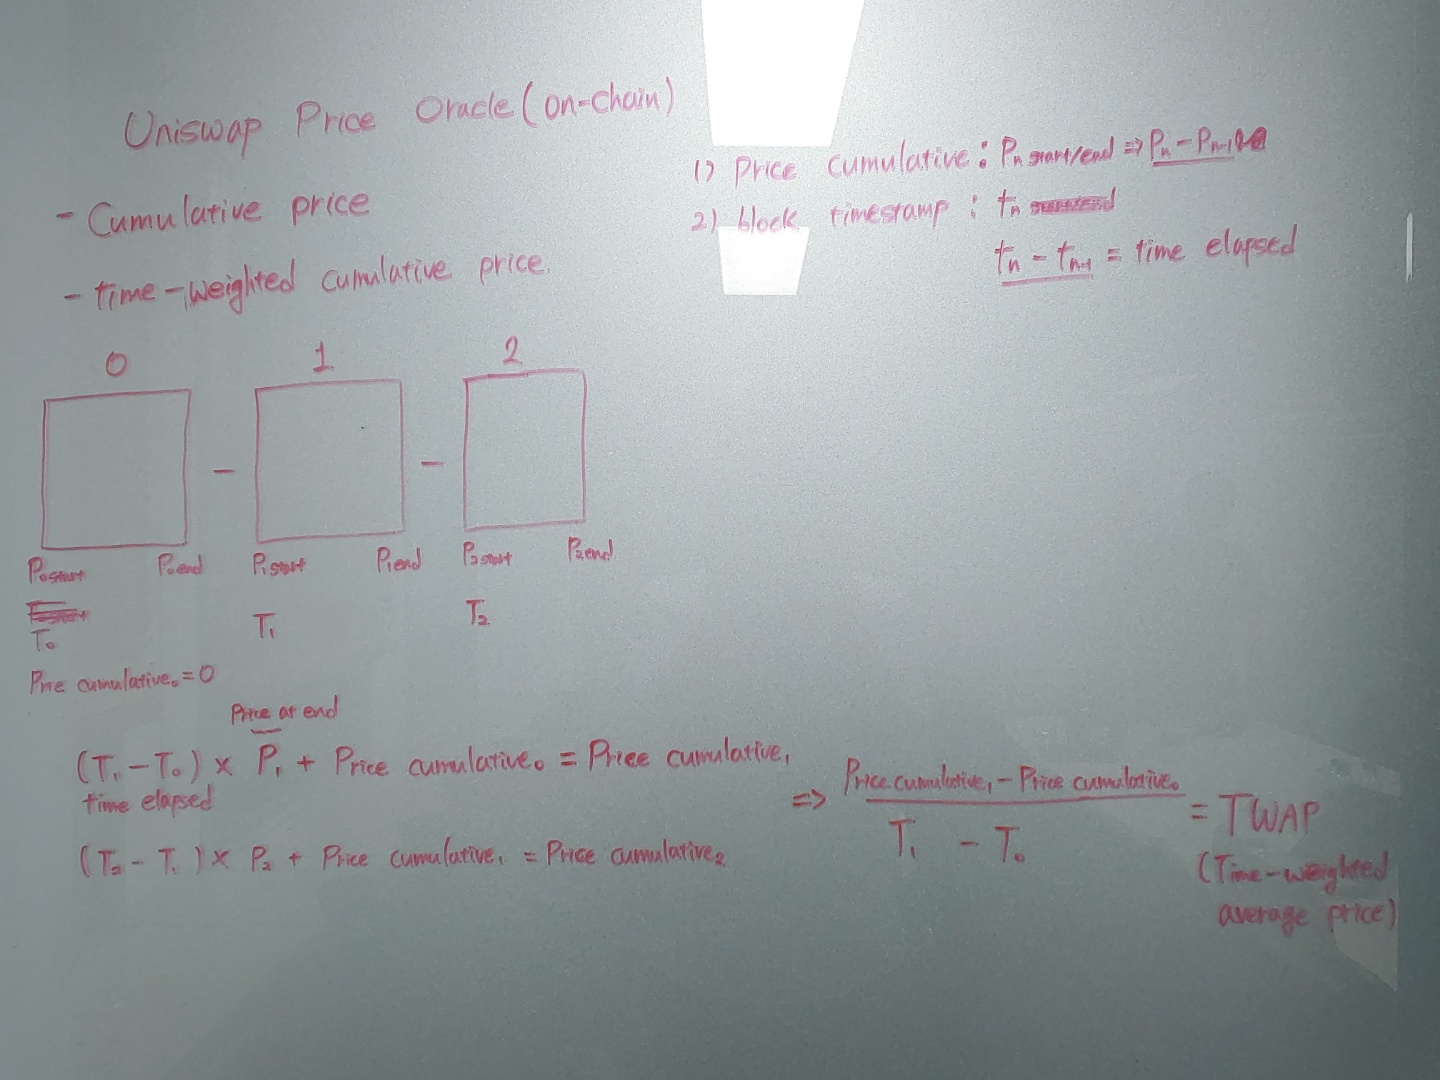 Uniswap Price Oracle (on-chain)
- Cumulative price
- time-weighted cumulative price.
1) Price cumulative : Pn start/end ⇒ Pn - Pn-1
2) block timestamp : tn
tn - tn-1 = time elapsed
0 1 2
P0start P0end P1start P1end P2start P2end
T0 T1 T2
Price cumulative0 = 0
Price at end
(T1 - T0) × P1 + Price cumulative0 = Price cumulative1
time elapsed
(T2 - T1) × P2 + Price cumulative1 = Price cumulative2
⇒ Price cumulative1 - Price cumulative0
T1 - T0
= TWAP
(Time-weighted
average price)